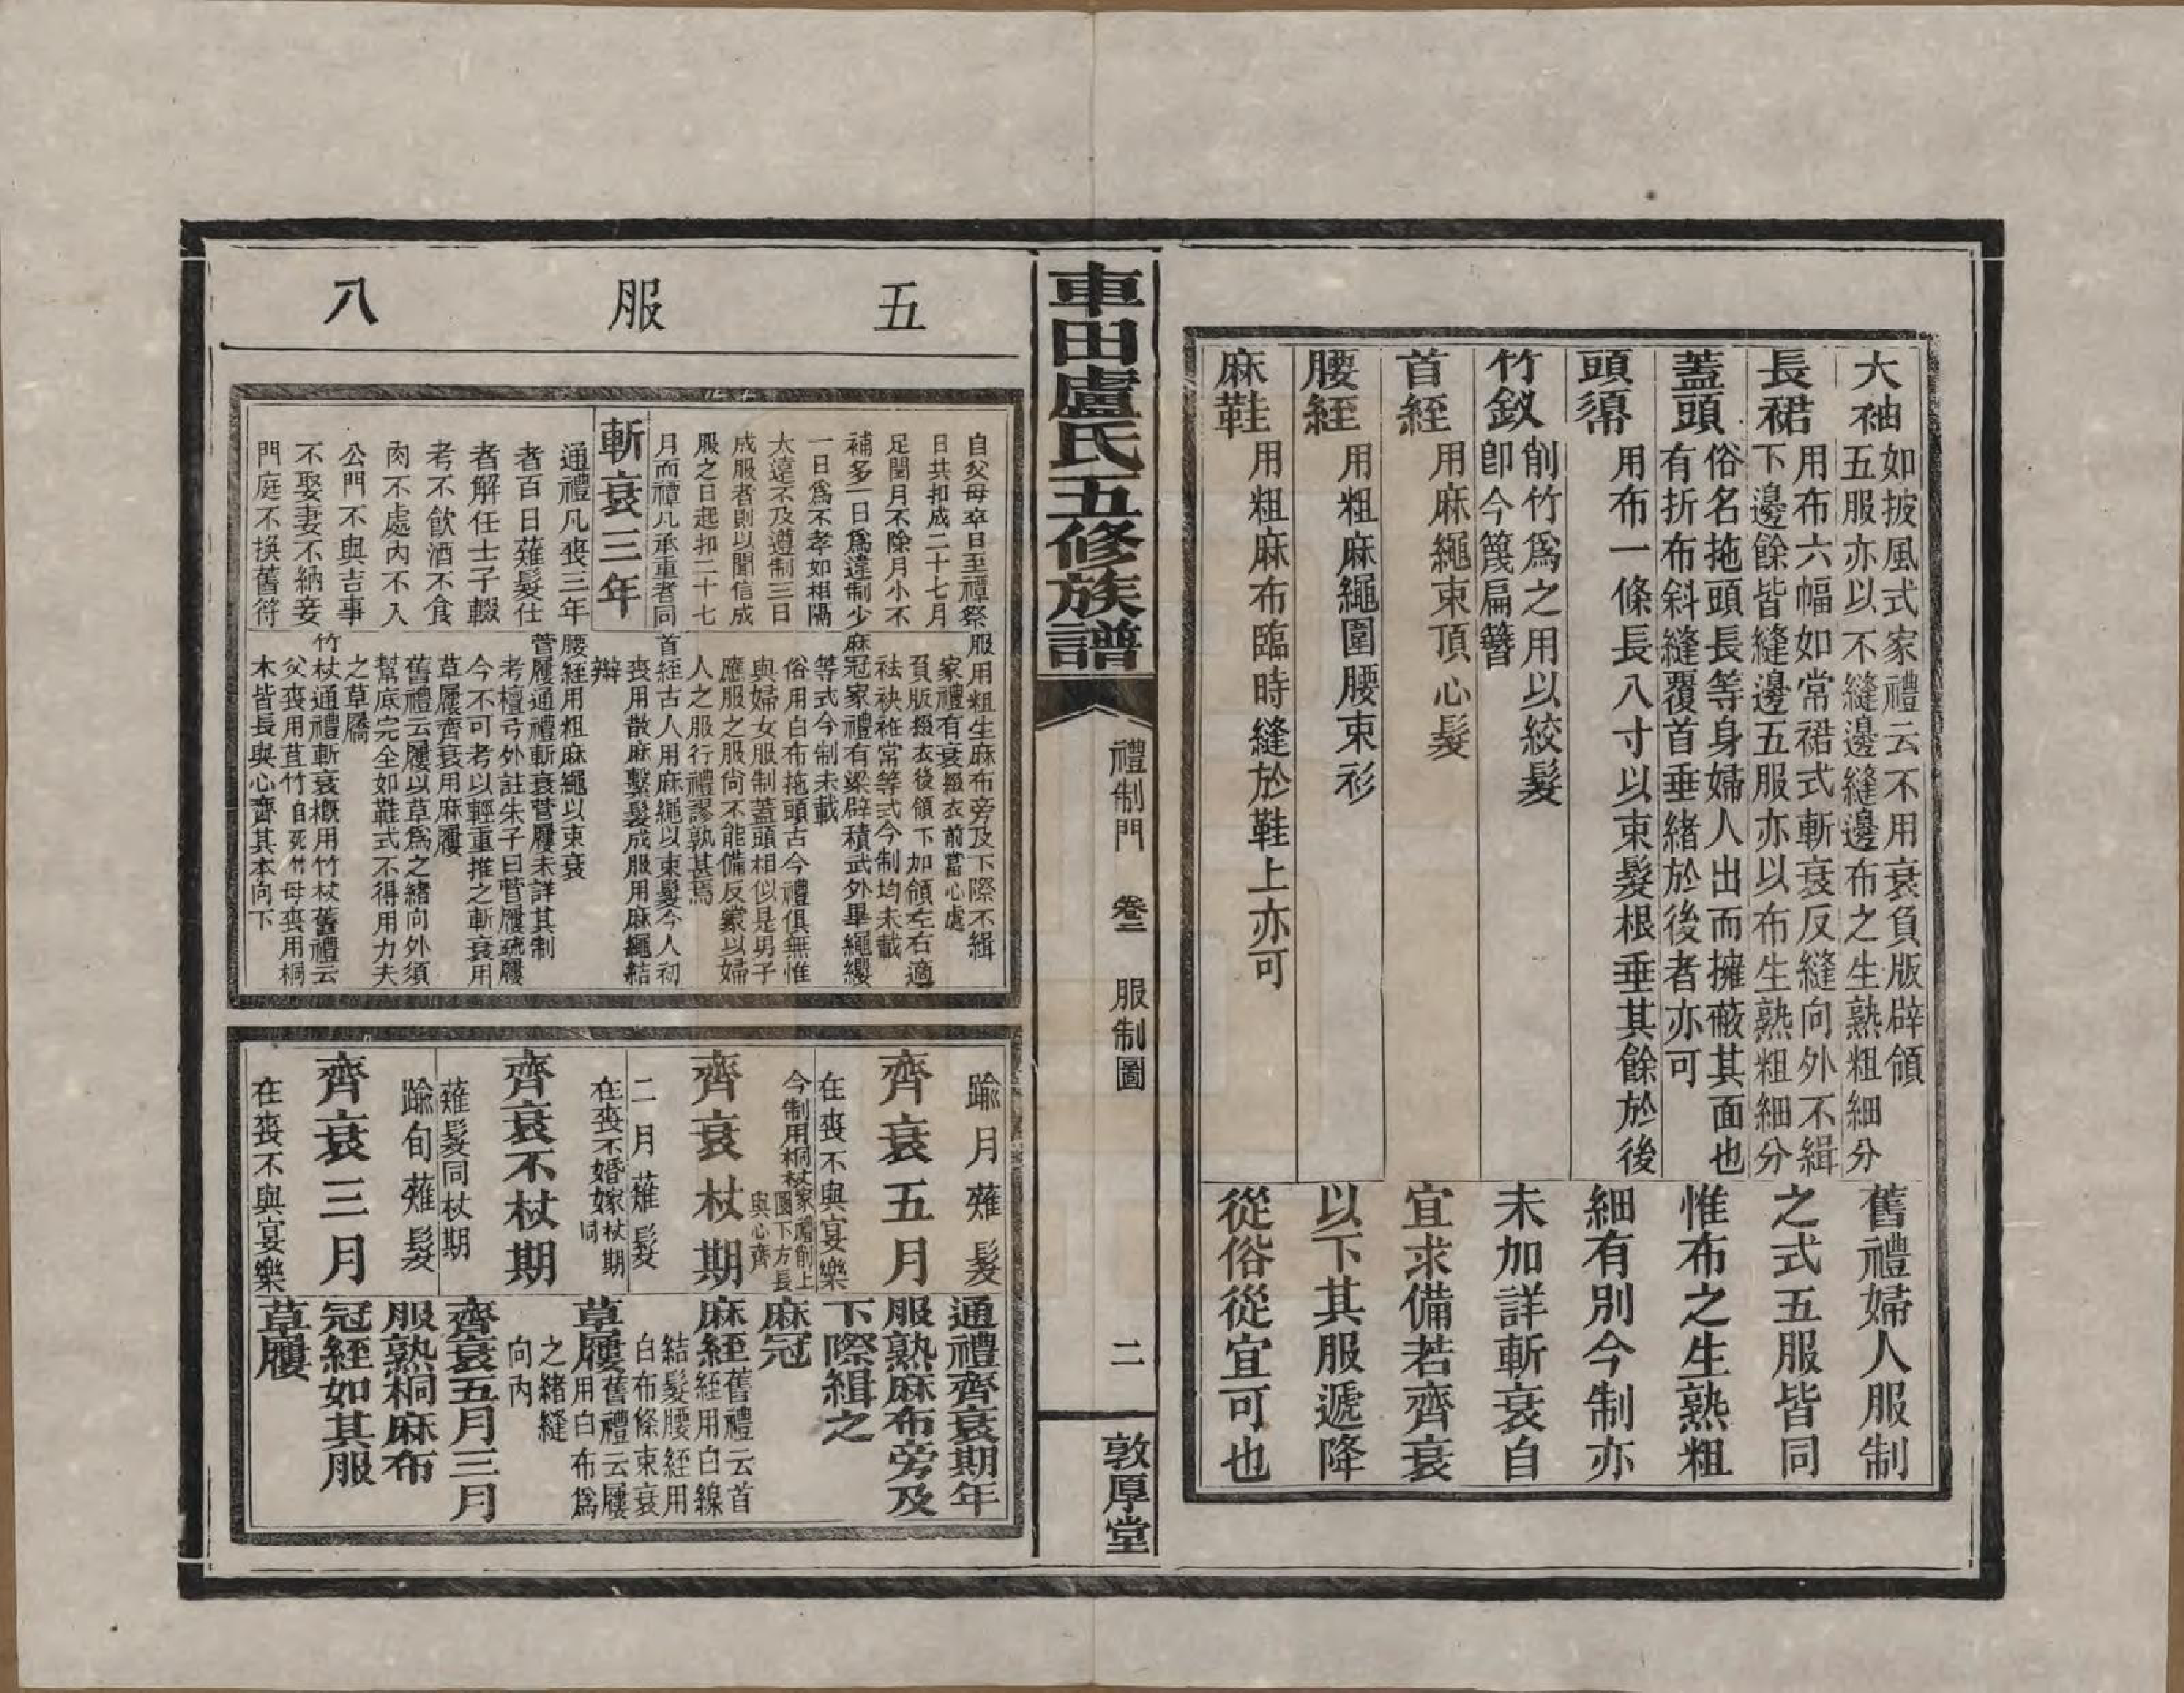 大袖
如披風式家禮云不用衰負版辟領
五服亦以不縫邊縫邊布之生熟粗細分
長裙
用布六幅如常裙式斬衰反縫向外不緝
下邊餘皆縫邊五服亦以布生熟粗細分
蓋頭
俗名拖頭長等身婦人出而擁蔽其面也
有折布斜縫覆首垂緒於後者亦可
頭𢄼
用布一條長八寸以束髮根垂其餘於後
竹釵
削竹爲之用以絞髮
卽今篾扁簪
首絰
用麻繩束頂心髮
腰絰
用粗麻繩圍腰束衫
麻鞋
用粗麻布臨時縫於鞋上亦可
舊禮婦人服制
之式五服皆同
惟布之生熟粗
細有別今制亦
未加詳斬衰自
宜求備若齊衰
以下其服遞降
從俗從宜可也
車田盧氏五修族譜
禮制門 卷二 服制圖
二
敦厚堂
五服八
自父母卒日至禫祭
日共扣成二十七月
足閏月不除月小不
補多一日爲違制少
一日爲不孝如相隔
太遠不及遵制三日
成服者則以聞信成
服之日起扣二十七
月而禫凡承重者同
斬衰三年
通禮凡喪三年
者百日薙髮仕
者解任士子輟
考不飲酒不食
肉不處內不入
公門不與吉事
不娶妻不納妾
門庭不換舊符
服用粗生麻布旁及下際不緝
家禮有衰綴衣前當心處
負版綴衣後領下加領左右適
袪袂袵常等式今制均未載
麻冠家禮有梁辟積武外畢繩纓
等式今制未載
俗用白布拖頭古今禮俱無惟
與婦女服制蓋頭相似是男子
應服之服尙不能備反䝉以婦
人之服行禮謬孰甚焉
首絰古人用麻繩以束髮今人初
喪用散麻繫髮成服用麻繩結
辮
腰絰用粗麻繩以束衰
菅屨通禮斬衰菅屨未詳其制
考檀弓外註朱子曰菅屨疏屨
今不可考以輕重推之斬衰用
草屨齊衰用麻屨
舊禮云屨以草爲之緒向外須
幫底完全如鞋式不得用力夫
之草屩
竹杖通禮斬衰槪用竹杖舊禮云
父喪用苴竹自死竹母喪用桐
木皆長與心齊其本向下
踰月薙髮
齊衰五月
在喪不與宴樂
今制用桐杖家禮削上
圓下方長
與心齊
齊衰杖期
二月薙髮
在喪不婚嫁杖期
同
齊衰不杖期
薙髮同杖期
踰旬薙髮
齊衰三月
在喪不與宴樂
通禮齊衰期年
服熟麻布旁及
下際緝之
麻冠
麻絰舊禮云首
絰用白線
結髮腰絰用
白布條束衰
草屨舊禮云屨
用白布爲
之緒縫
向內
齊衰五月三月
服熟桐麻布
冠絰如其服
草屨